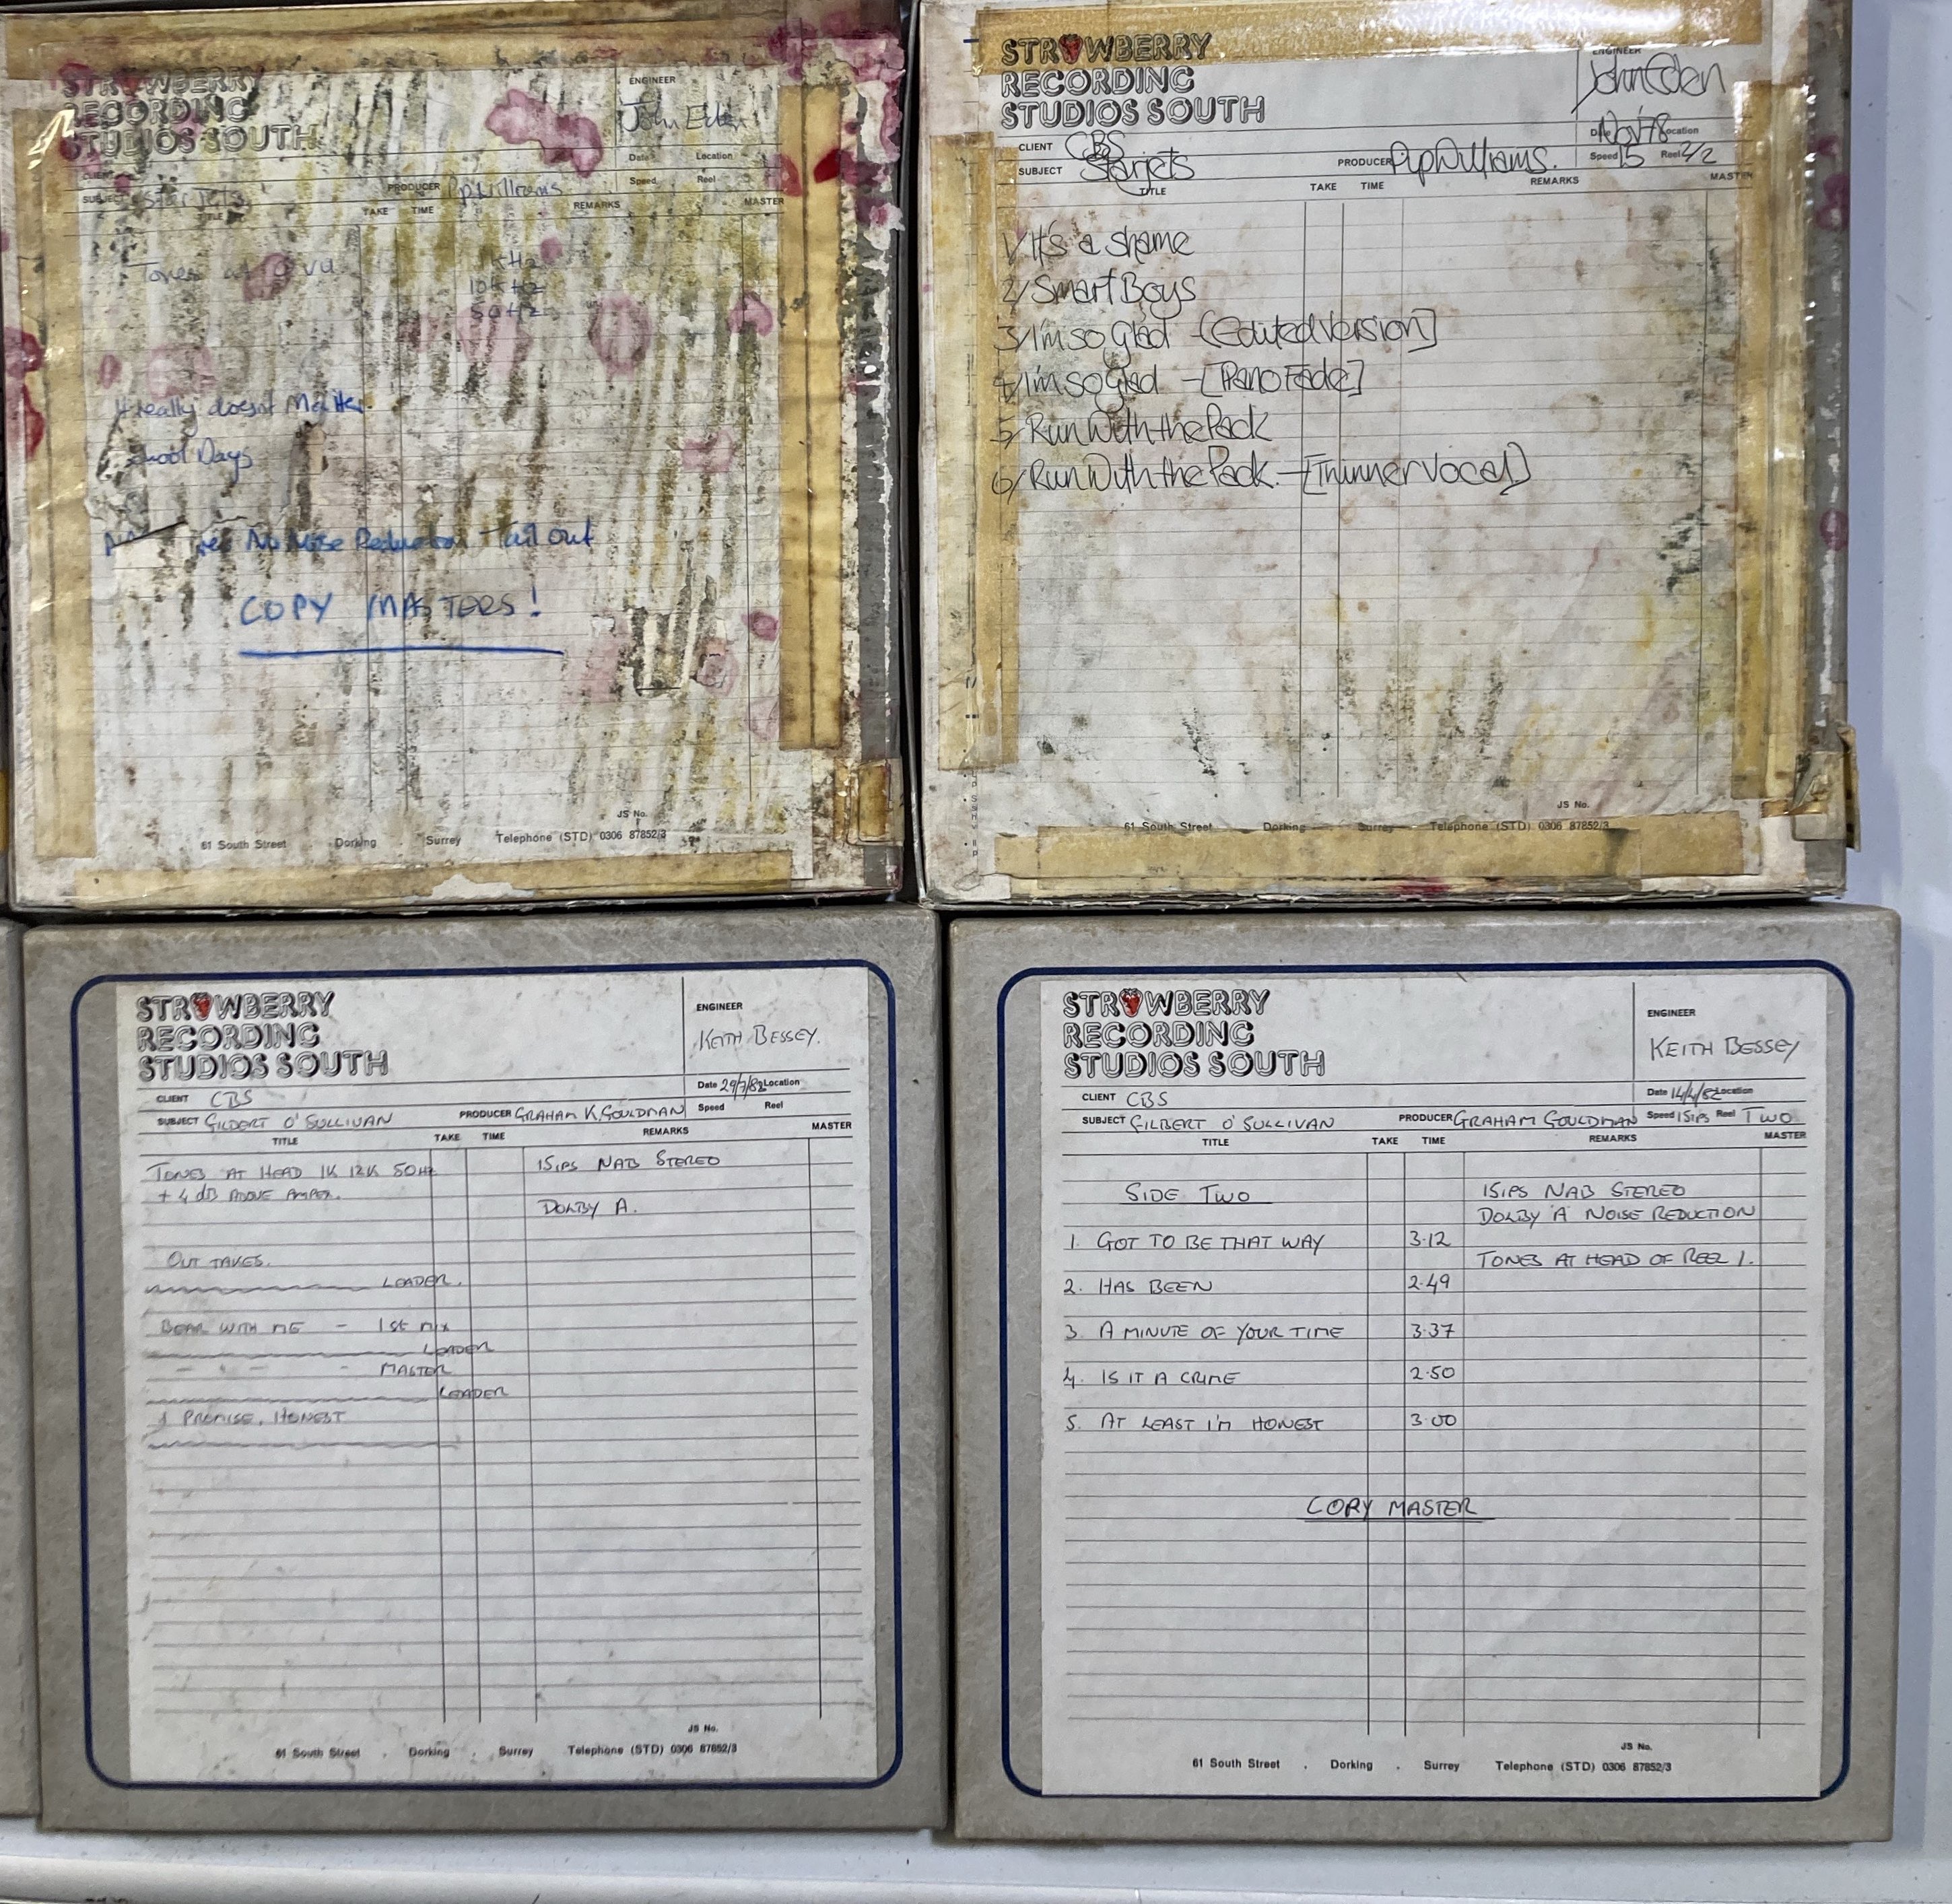 STRAWBERRY
RECORDING
STUDIOS SOUTH
ENGINEER
John Eden
Date Location
SUBJECT Star Jets
PRODUCER Pip Williams
Speed Reel
TITLE TAKE TIME REMARKS MASTER
Tones at 0 VU
KHz
10KHz
50Hz
It really doesn't Matter.
School Days
No Noise Reduction - Tail out
COPY MASTERS!
JS No.
61 South Street Dorking . Surrey Telephone (STD) 0306 87852/3
STRAWBERRY
RECORDING
STUDIOS SOUTH
ENGINEER
John Eden
CLIENT CBS
Date Nov 78 Location
SUBJECT Starjets
PRODUCER Pip Williams.
Speed 15 Reel 2/2
TITLE TAKE TIME REMARKS MASTER
1/ It's a shame
2/ Smart Boys
3/ I'm so Glad - [Edited Version]
4/ I'm so Glad - [Piano Fade]
5/ Run With the Pack
6/ Run With the Pack. - [Thinner Vocal]
JS No.
61 South Street Dorking Surrey Telephone (STD) 0306 87852/3
STRAWBERRY
RECORDING
STUDIOS SOUTH
ENGINEER
KEITH BESSEY.
CLIENT CBS
Date 29/7/82 Location
SUBJECT GILBERT O'SULLIVAN PRODUCER GRAHAM K. GOULDMAN
Speed Reel
TITLE TAKE TIME REMARKS MASTER
TONES AT HEAD 1K 12K 50Hz 15IPS NAB STEREO
+ 4 dB ABOVE AMPEX.
DOLBY A.
OUT TAKES.
LEADER.
BEAR WITH ME - 1st MIX
LEADER
- " - - MASTER
LEADER
I PROMISE, HONEST
JS No.
61 South Street . Dorking . Surrey Telephone (STD) 0306 87852/3
STRAWBERRY
RECORDING
STUDIOS SOUTH
ENGINEER
KEITH BESSEY
CLIENT CBS
Date 14/4/82 Location
SUBJECT GILBERT O'SULLIVAN PRODUCER GRAHAM GOULDMAN Speed 15IPS Reel TWO
TITLE TAKE TIME REMARKS MASTER
SIDE TWO 15IPS NAB STEREO
DOLBY 'A' NOISE REDUCTION
1. GOT TO BE THAT WAY 3.12
TONES AT HEAD OF REEL 1.
2. HAS BEEN 2.49
3. A MINUTE OF YOUR TIME 3.37
4. IS IT A CRIME 2.50
5. AT LEAST I'M HONEST 3.00
COPY MASTER
JS No.
61 South Street . Dorking . Surrey Telephone (STD) 0306 87852/3